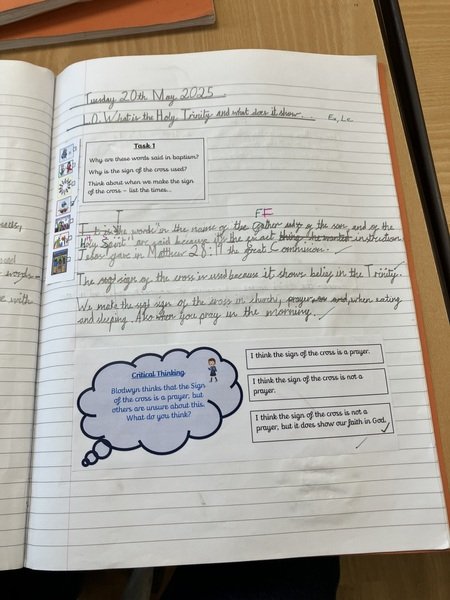 Tuesday 20th May 2025
L.O. What is the Holy Trinity and what does it show. Ex, Le
Task 1
Why are these words said in baptism?
Why is the sign of the cross used?
Think about when we make the sign
of the cross – list the times...
the words "in the name of the father of the son, and of the
Holy Spirit" are said because it's the exact thing he wanted instruction
Jesus gave in Matthew 28:19 the great Commission.
The sign of the cross is used because it shows belief in the Trinity.
We make the sign of the cross in church, prayer when eating
and sleeping. Also when you pray in the morning.
Critical Thinking
Blodwyn thinks that the Sign
of the cross is a prayer, but
others are unsure about this.
What do you think?
I think the sign of the cross is a prayer.
I think the sign of the cross is not a
prayer.
I think the sign of the cross is not a
prayer, but it does show our faith in God.